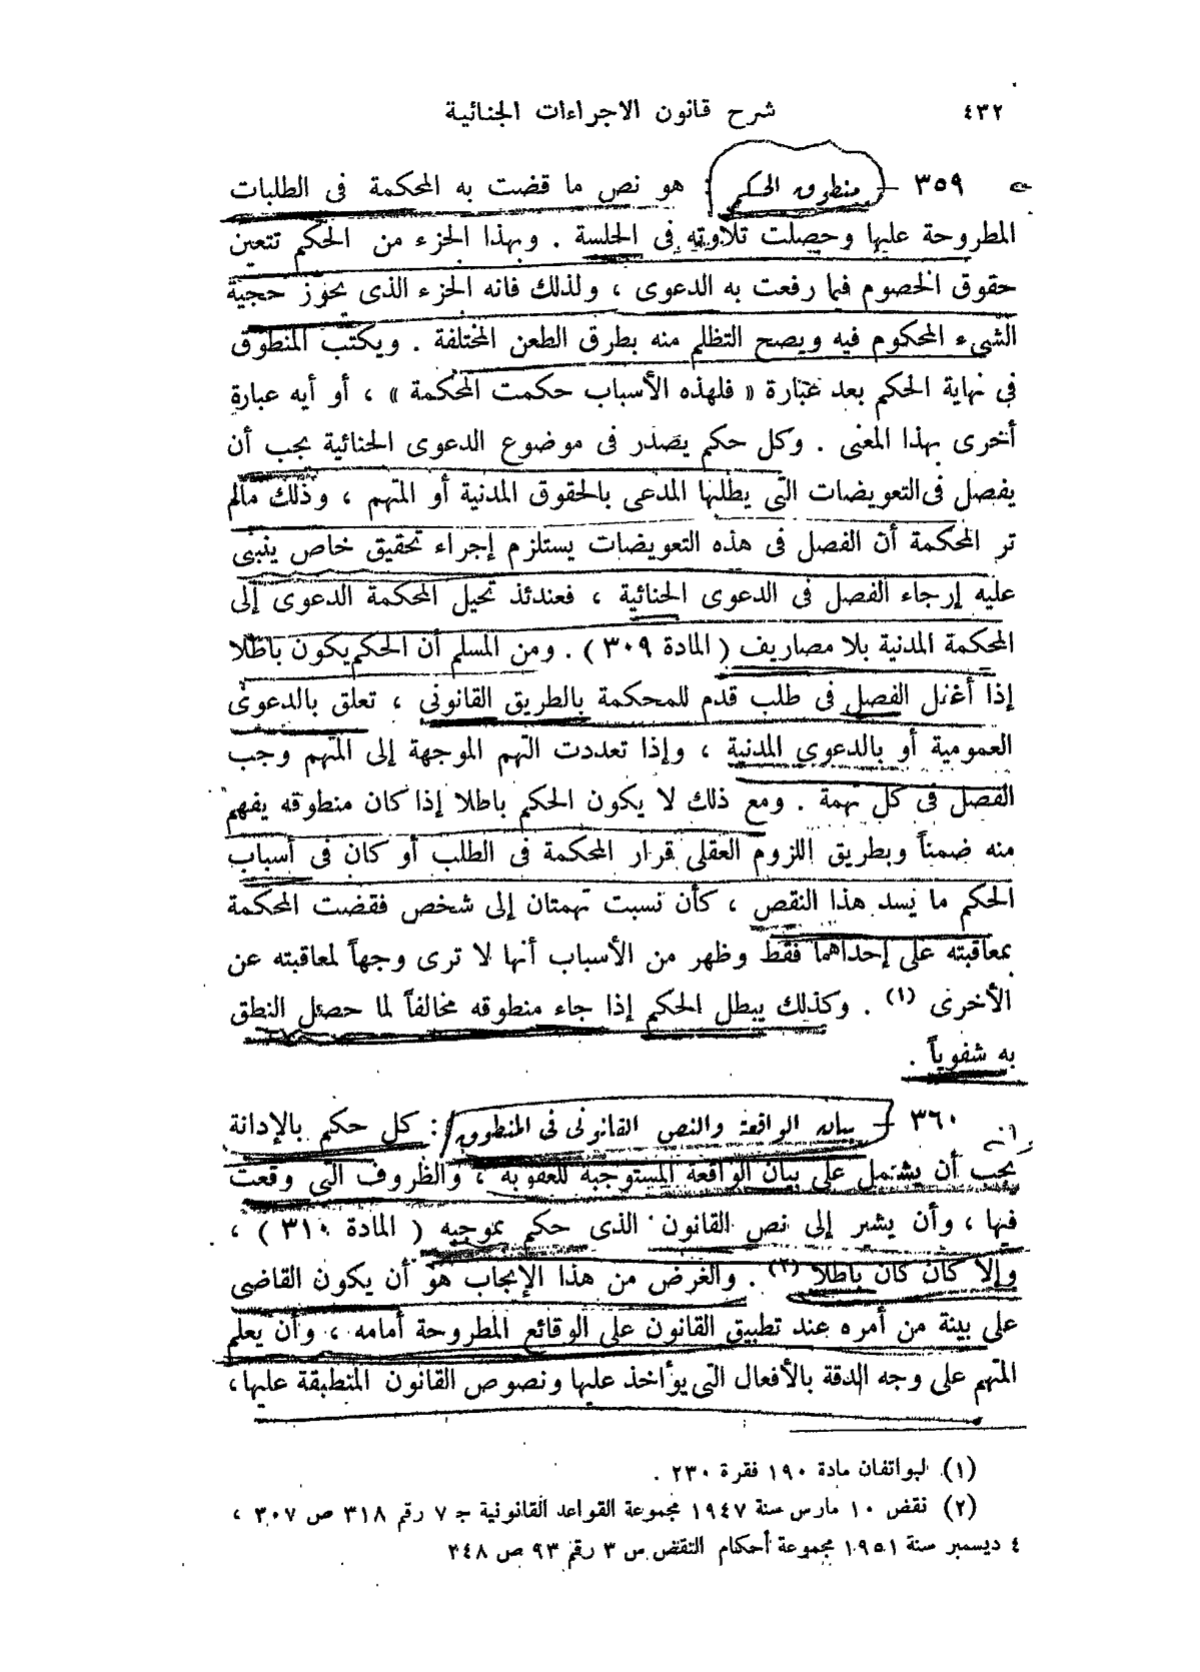 ٤٣٢
شرح قانون الاجراءات الجنائية
٣٥٩ – منطوق الحكم : هو نص ما قضت به المحكمة فى الطلبات
المطروحة عليها وحصلت تلاوته فى الجلسة . وبهذا الجزء من الحكم تتعين
حقوق الخصوم فيما رفعت به الدعوى ، ولذلك فانه الجزء الذى يحوز حجية
الشىء المحكوم فيه ويصح التظلم منه بطرق الطعن المختلفة . ويكتب المنطوق
فى نهاية الحكم بعد عبارة « فلهذه الأسباب حكمت المحكمة » ، أو أيه عبارة
أخرى بهذا المعنى . وكل حكم يصدر فى موضوع الدعوى الجنائية يجب أن
يفصل فى التعويضات التى يطلبها المدعى بالحقوق المدنية أو المتهم ، وذلك مالم
تر المحكمة أن الفصل فى هذه التعويضات يستلزم إجراء تحقيق خاص ينبنى
عليه إرجاء الفصل فى الدعوى الجنائية ، فعندئذ تحيل المحكمة الدعوى إلى
المحكمة المدنية بلا مصاريف ( المادة ٣٠٩ ) . ومن المسلم أن الحكم يكون باطلا
إذا أغفل الفصل فى طلب قدم للمحكمة بالطريق القانونى ، تعلق بالدعوى
العمومية أو بالدعوى المدنية ، وإذا تعددت التهم الموجهة إلى المتهم وجب
الفصل فى كل تهمة . ومع ذلك لا يكون الحكم باطلا إذا كان منطوقه يفهم
منه ضمناً وبطريق اللزوم العقلى قرار المحكمة فى الطلب أو كان فى أسباب
الحكم ما يسد هذا النقص ، كأن نسبت تهمتان إلى شخص فقضت المحكمة
بمعاقبته على إحداهما فقط وظهر من الأسباب أنها لا ترى وجهاً لمعاقبته عن
الأخرى (١) . وكذلك يبطل الحكم إذا جاء منطوقه مخالفاً لما حصل النطق
به شفوياً .
٣٦٠ – بيان الواقعة والنص القانونى فى المنطوق : كل حكم بالإدانة
يجب أن يشتمل على بيان الواقعة المستوجبة للعقوبة ، والظروف التى وقعت
فيها ، وأن يشير إلى نص القانون الذى حكم بموجبه ( المادة ٣١٠ ) ،
وإلا كان كان باطلا (٢) . والغرض من هذا الإيجاب هو أن يكون القاضى
على بينة من أمره عند تطبيق القانون على الوقائع المطروحة أمامه ، وأن يعلم
المتهم على وجه الدقة بالأفعال التى يؤاخذ عليها ونصوص القانون المنطبقة عليها ،
(١) لبواتفان مادة ١٩٠ فقرة ٢٣٠ .
(٢) نقض ١٠ مارس سنة ١٩٤٧ مجموعة القواعد القانونية جـ ٧ رقم ٣١٨ ص ٣٠٧ ،
٤ ديسمبر سنة ١٩٥١ مجموعة أحكام النقض س ٣ رقم ٩٣ ص ٢٤٨